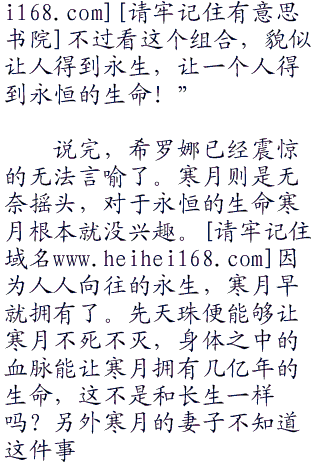 i168.com][请牢记住有意思
书院]不过看这个组合，貌似
让人得到永生，让一个人得
到永恒的生命！”
说完，希罗娜已经震惊
的无法言喻了。寒月则是无
奈摇头，对于永恒的生命寒
月根本就没兴趣。[请牢记住
域名www.heihei168.com]因
为人人向往的永生，寒月早
就拥有了。先天珠便能够让
寒月不死不灭，身体之中的
血脉能让寒月拥有几亿年的
生命，这不是和长生一样
吗？另外寒月的妻子不知道
这件事